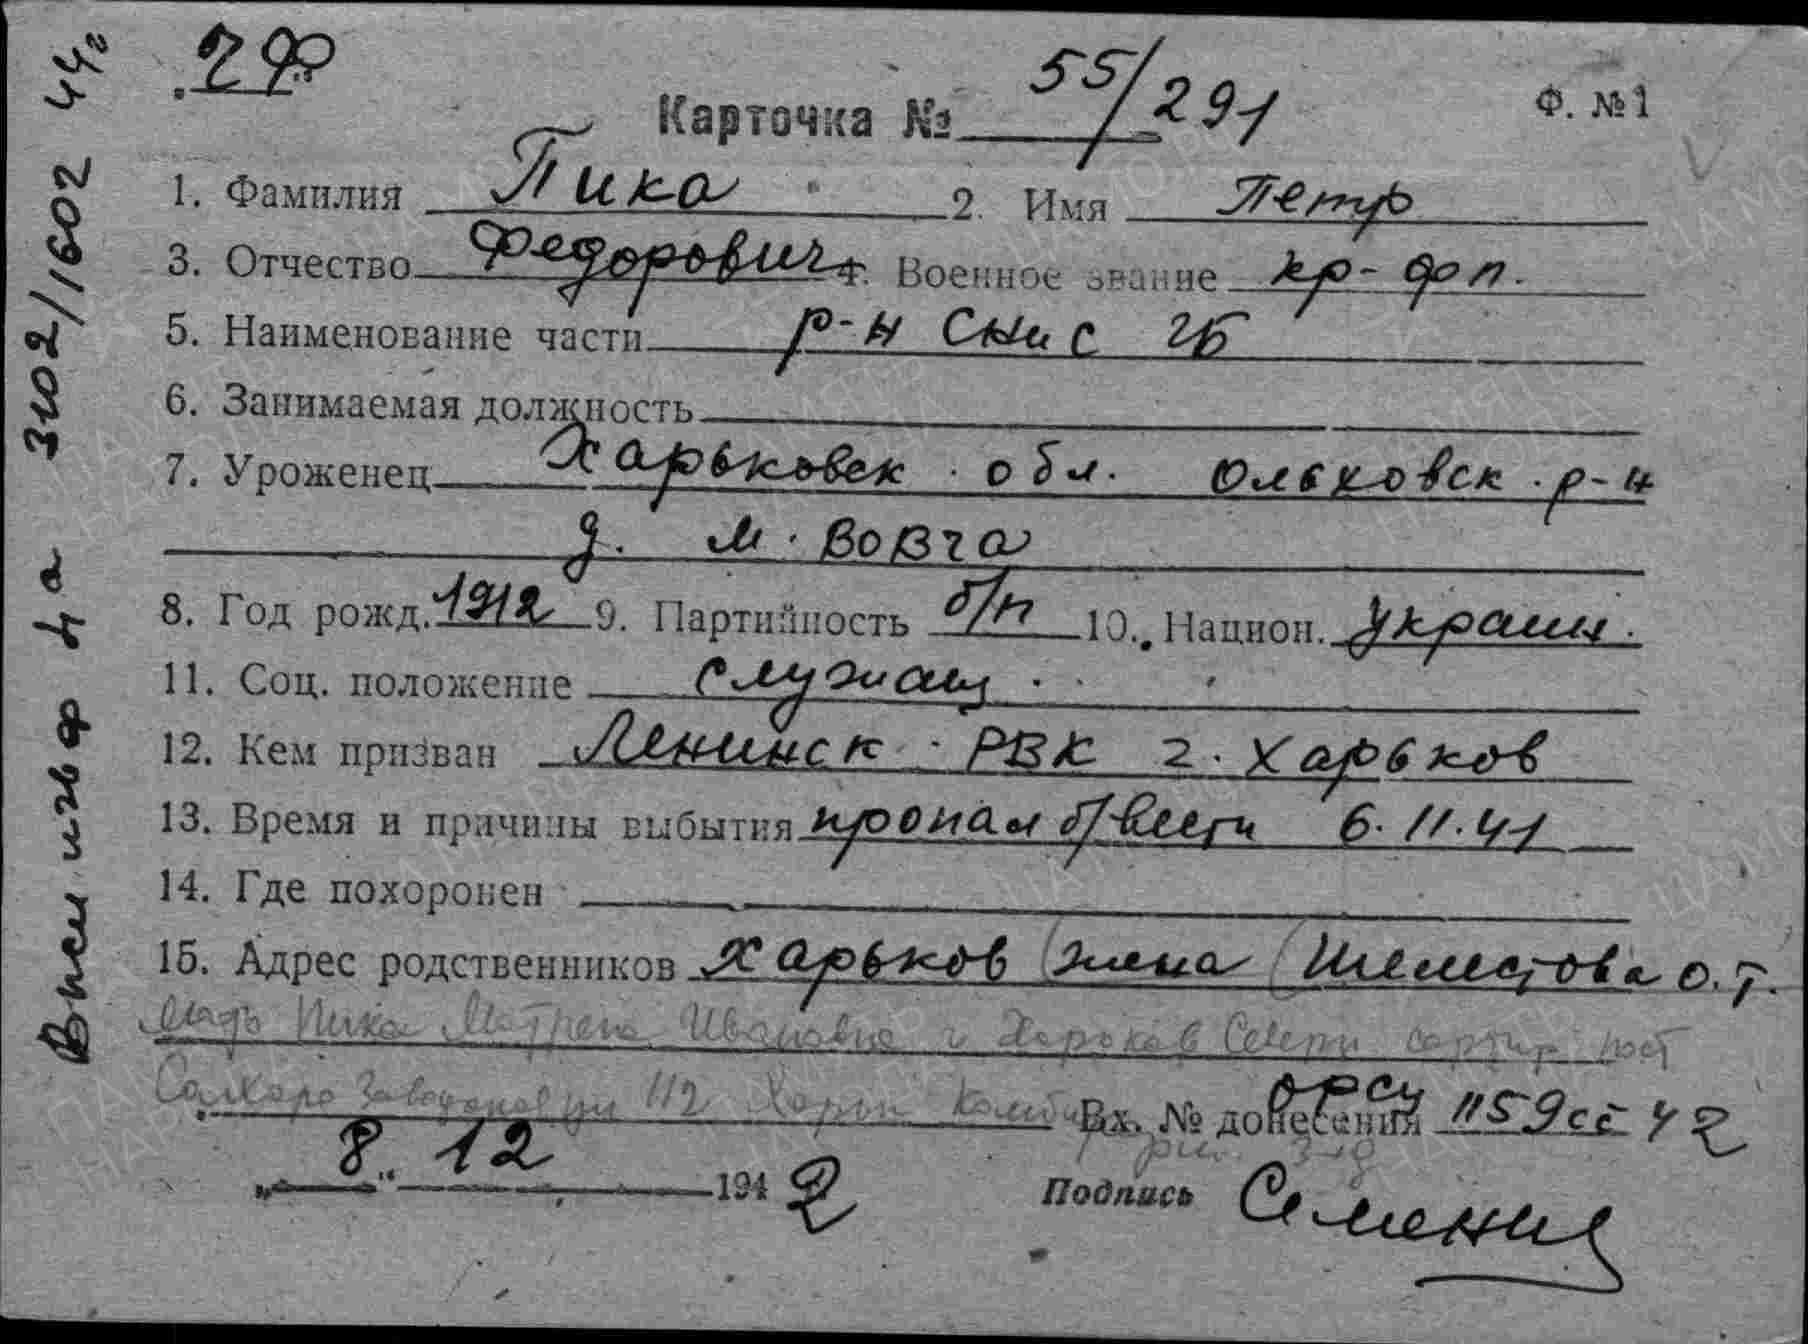 29
Карточка № 55/291
Ф. № 1
1. Фамилия Пика 2. Имя Петр
3. Отчество Федорович 4. Военное звание кр-фп.
5. Наименование части р-н СНиС ЧБ
6. Занимаемая должность
7. Уроженец Харьковск. обл. Ольховск. р-н
д. м. Вовча
8. Год рожд. 1912 9. Партийность б/п 10. Национ. украин.
11. Соц. положение служащ.
12. Кем призван Ленинск. РВК г. Харьков
13. Время и причины выбытия пропал б/вести 6.11.41
14. Где похоронен
15. Адрес родственников Харьков (жена Шелестова О.Т.
мать Пика Матрена Ивановна г Харьков Север пост
Вх. № донесения ОРСУ 1159сс 42
„8.“ 12 1942
Подпись Семенил
Вх 3102/1602 44г